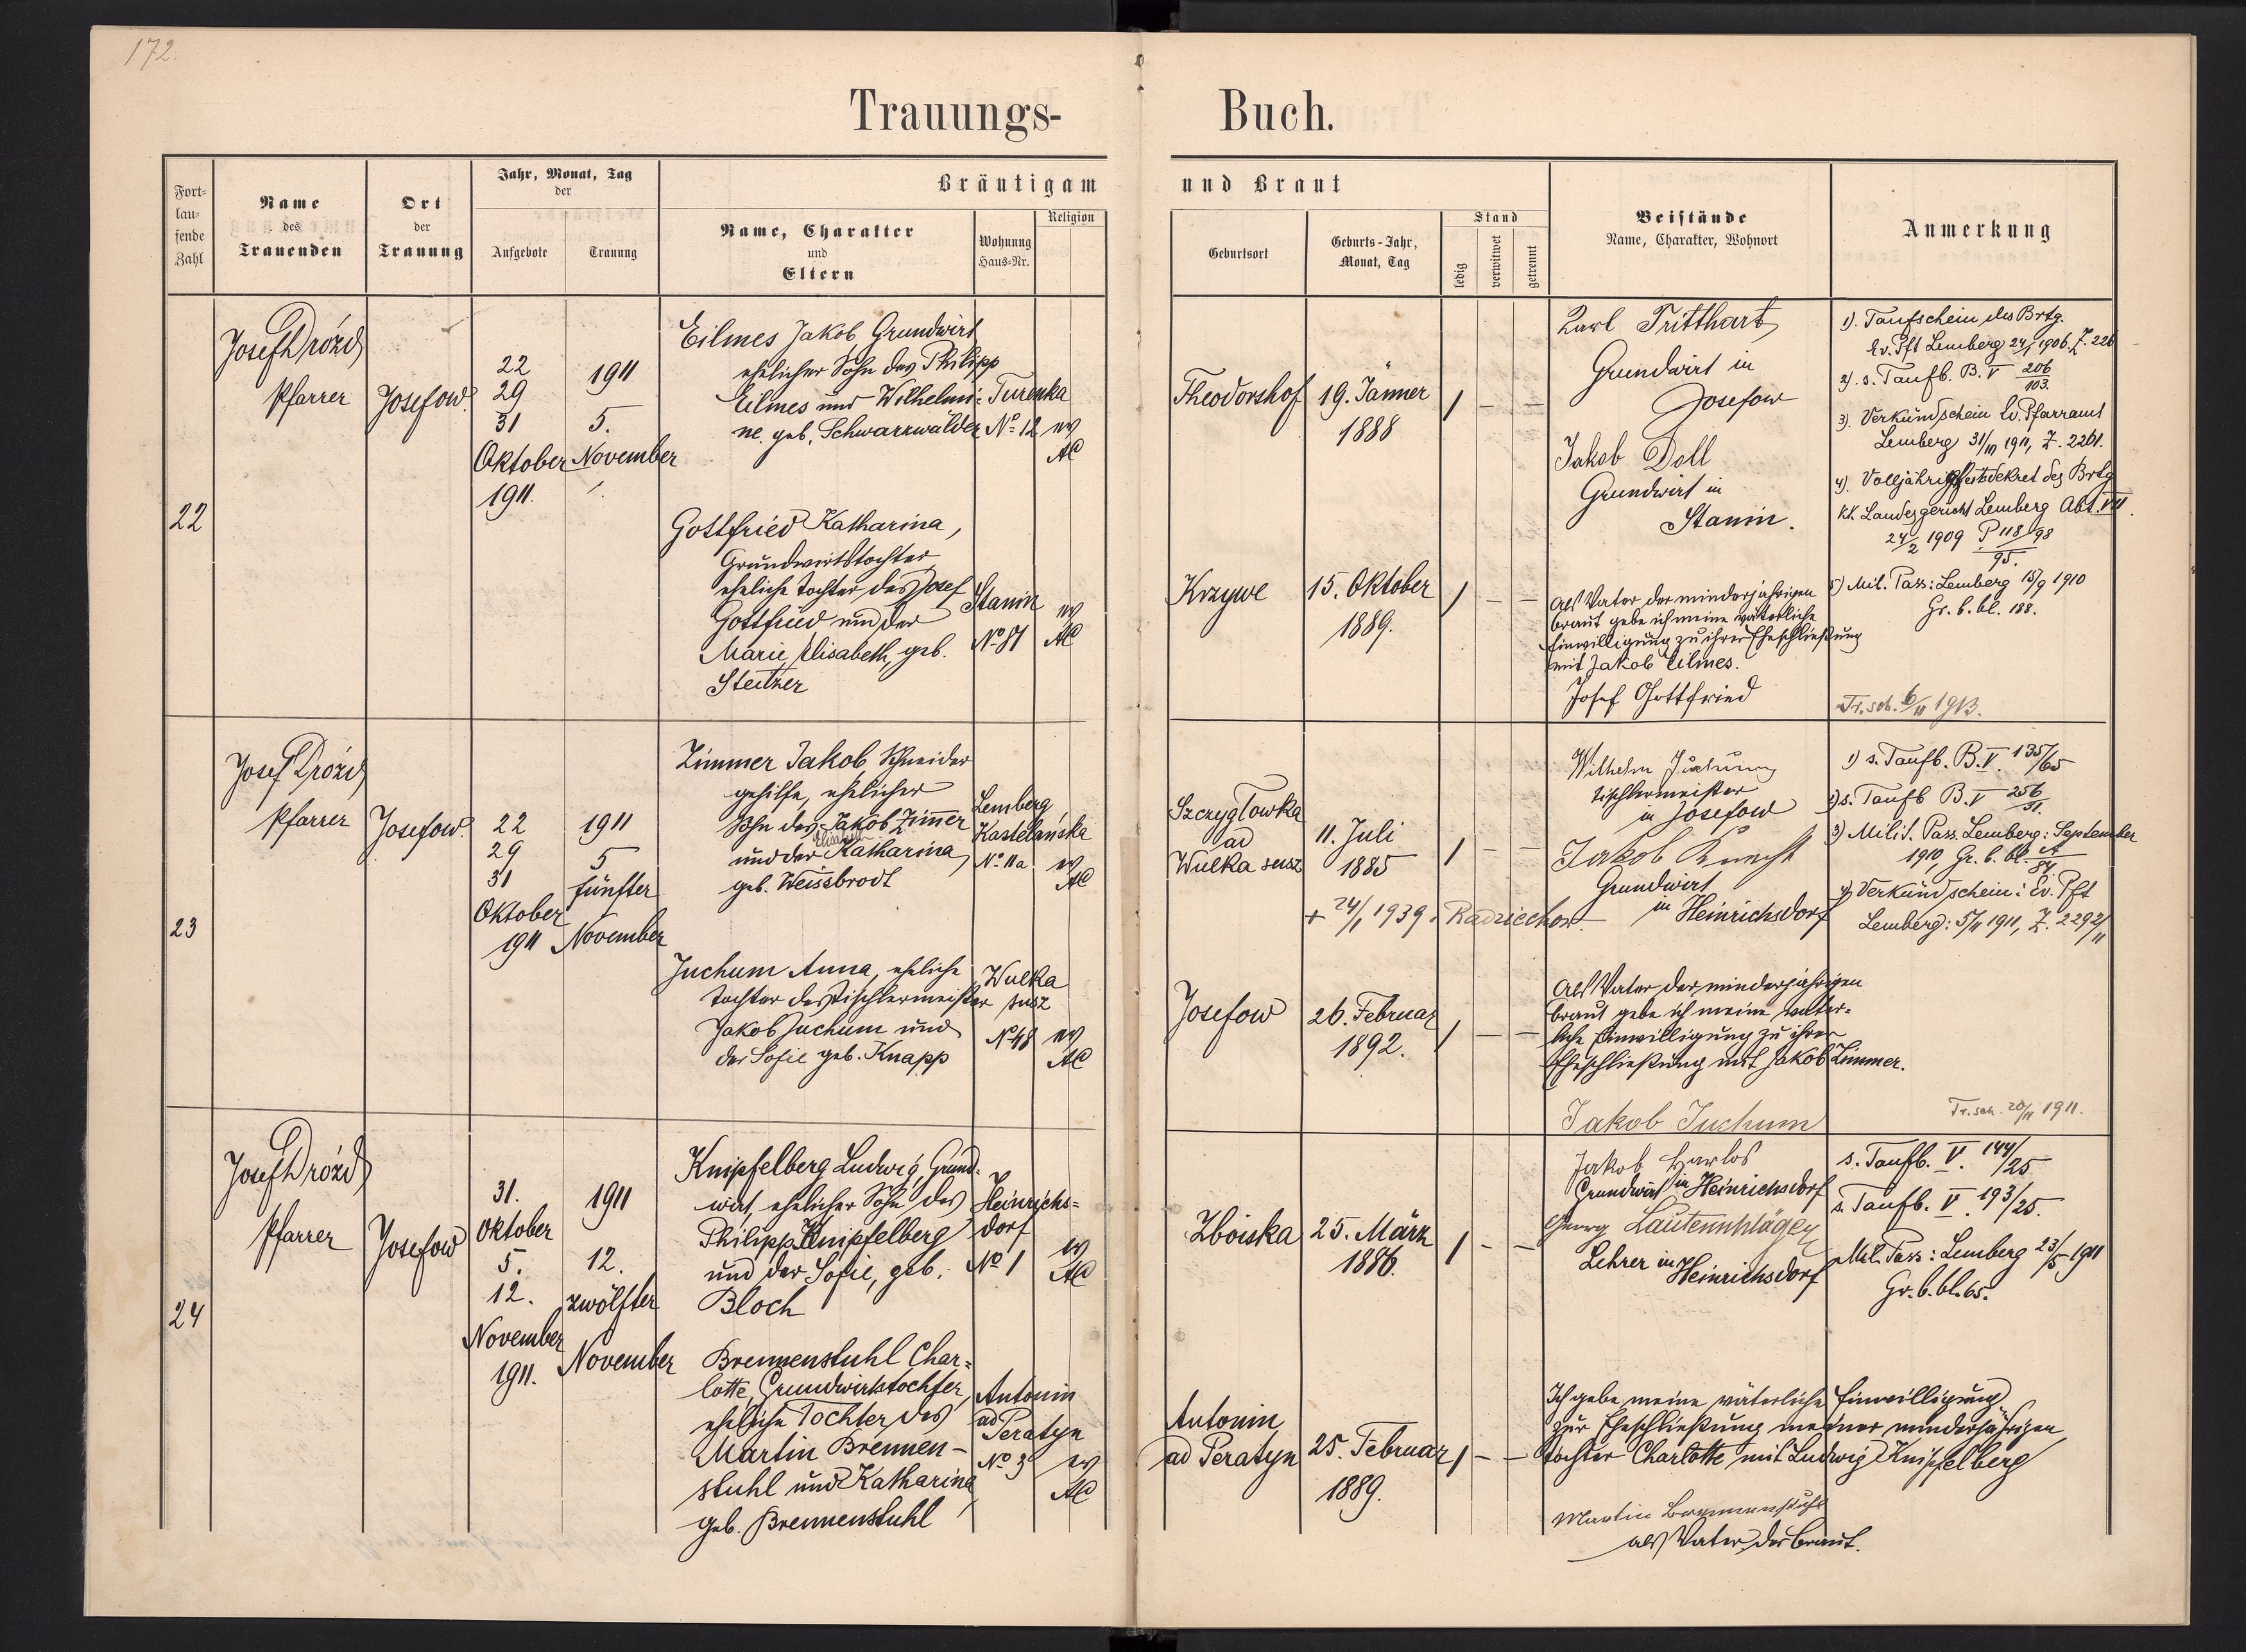 172.
Trauungs-Buch.
Fort-
lau-
fende
Zahl
Name
des
Trauenden
Ort
der
Trauung
Jahr, Monat, Tag
der
Aufgebote
Trauung
Bräutigam und Braut
Name, Charakter
und
Eltern
Wohnung
Haus-Nr.
Religion
Geburtsort
Geburts-Jahr,
Monat, Tag
Stand
ledig
verwitwet
getrennt
Beistände
Name, Charakter, Wohnort
Anmerkung
22
Josef Drózd
Pfarrer
Josefow.
22
29
31
Oktober
1911.
1911
5.
November
Eilmes Jakob, Grundwirt
ehelicher Sohn des Philipp
Eilmes und Wilhelmi-
ne. geb. Schwarzwälder
Turenka
No 12
ev
AC
Theodorshof
19. Jänner
1888
/ — —
Karl Tritthart
Grundwirt in
Josefow
Jakob Doll
Grundwirt in
Stanin.
1). Taufschein des Brtg.
Ev. Pft Lemberg 24/1 1906. Z. 226
2). s. Taufb. B. V 206/103.
3). Verkündschein Ev. Pfarramt
Lemberg 31/10 1911, Z. 2261.
4). Volljährigkeitsdekret des Brtg
kk. Landesgericht Lemberg Abt. VII.
24/2 1909 P 118/98
95.
5) Mil. Pass: Lemberg 15/9 1910
Gr. b. bl. 188.
Gottfried Katharina,
Grundwirtstochter,
eheliche Tochter des Josef
Gottfried und der
Marie Elisabeth, geb.
Steitzer
Stanin
No 87
ev
AC
Krzywe
15. Oktober
1889.
/ — —
Als Vater der minderjährigen
Braut gebe ich meine väterliche
Einwilligung zu ihrer Eheschließung
mit Jakob Eilmes.
Josef Gottfried
Tr. sch. 6/11 1913.
23
Josef Drózd
Pfarrer
Josefow.
22
29
31
Oktober
1911
1911
5
fünfter
November
Zimmer Jakob Schneider
gehilfe, ehelicher
Sohn des Jakob Zimmer
und der Katharina
geb. Weissbrodt
Lemberg
Kastelańska
No 11a
ev
AC
Szczygłowka
ad
Wulka susz
11. Juli
1885
/ — —
+ 24/1 1939. Radziechow
Wilhelm Juchum
Tischlermeister
in Josefow
Jakob Knecht
Grundwirt
in Heinrichsdorf
1) s. Taufb. B. V. 135/65
2) s. Taufb B. V 256/31.
3) Milit. Pass. Lemberg: September
1910, Gr. b. bl. A/84
4) Verkündschein: Ev. Pft
Lemberg: 5/11 1911, Z. 2292/11
Juchum Anna, eheliche
Tochter des Tischlermeister
Jakob Juchum und
der Sofie geb. Knapp
Wulka
susz
No 48
ev
AC
Josefow
26. Februar
1892.
/ — —
Als Vater der minderjährigen
Braut gebe ich meine väter-
liche Einwilligung zu ihrer
Eheschließung mit Jakob Zimmer.
Jakob Juchum
Tr. sch. 20/11 1911.
24
Josef Drózd
Pfarrer
Josefow
31.
Oktober
5.
12.
November
1911.
1911
12.
zwölfter
November
Knipfelberg Ludwig, Grund-
wirt, ehelicher Sohn des
Philipp Knipfelberg
und der Sofie, geb.
Bloch
Heinrichs-
dorf
No 1
ev
AC
Zboiska
25. März
1886.
/ — —
Jakob Harlos
Grundwirt in Heinrichsdorf
Georg Lautenschläger
Lehrer in
Heinrichsdorf
s. Taufb. V. 144/25
s. Taufb. V. 193/25.
Mil. Pass: Lemberg 23/5 1911
Gr. b. bl. 65.
Brennenstuhl Char-
lotte, Grundwirtstochter,
eheliche Tochter des
Martin Brennen-
stuhl und Katharina
geb. Brennenstuhl
Antonin
ad
Peratyn
No 3
ev
AC
Antonin
ad Peratyn
25. Februar
1889.
/ — —
Ich gebe meine väterliche Einwilligung
zur Eheschließung meiner minderjährigen
Tochter Charlotte mit Ludwig Knipfelberg
Martin Brennenstuhl
als Vater der Braut.